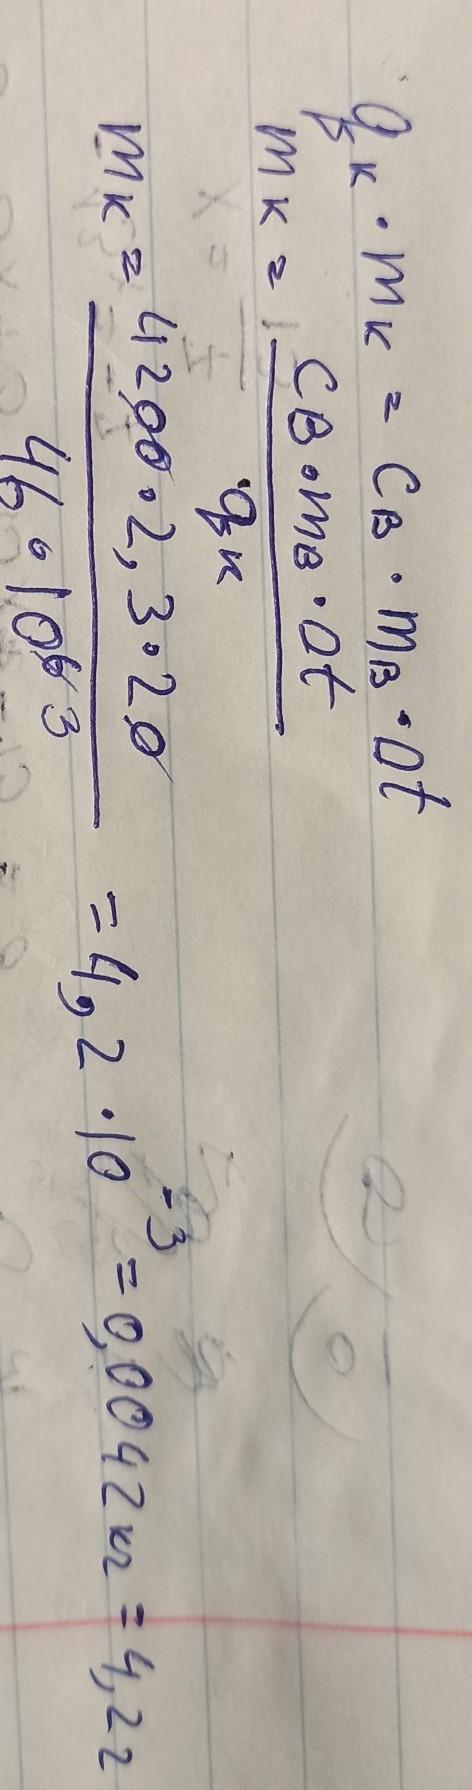 qк · mк = cв · mв · Δt
mк = cв · mв · Δt / qк
mк = 4200 · 2,3 · 20 / 46 · 10⁶ ³ = 4,2 · 10⁻³ = 0,0042 кг = 4,2 г